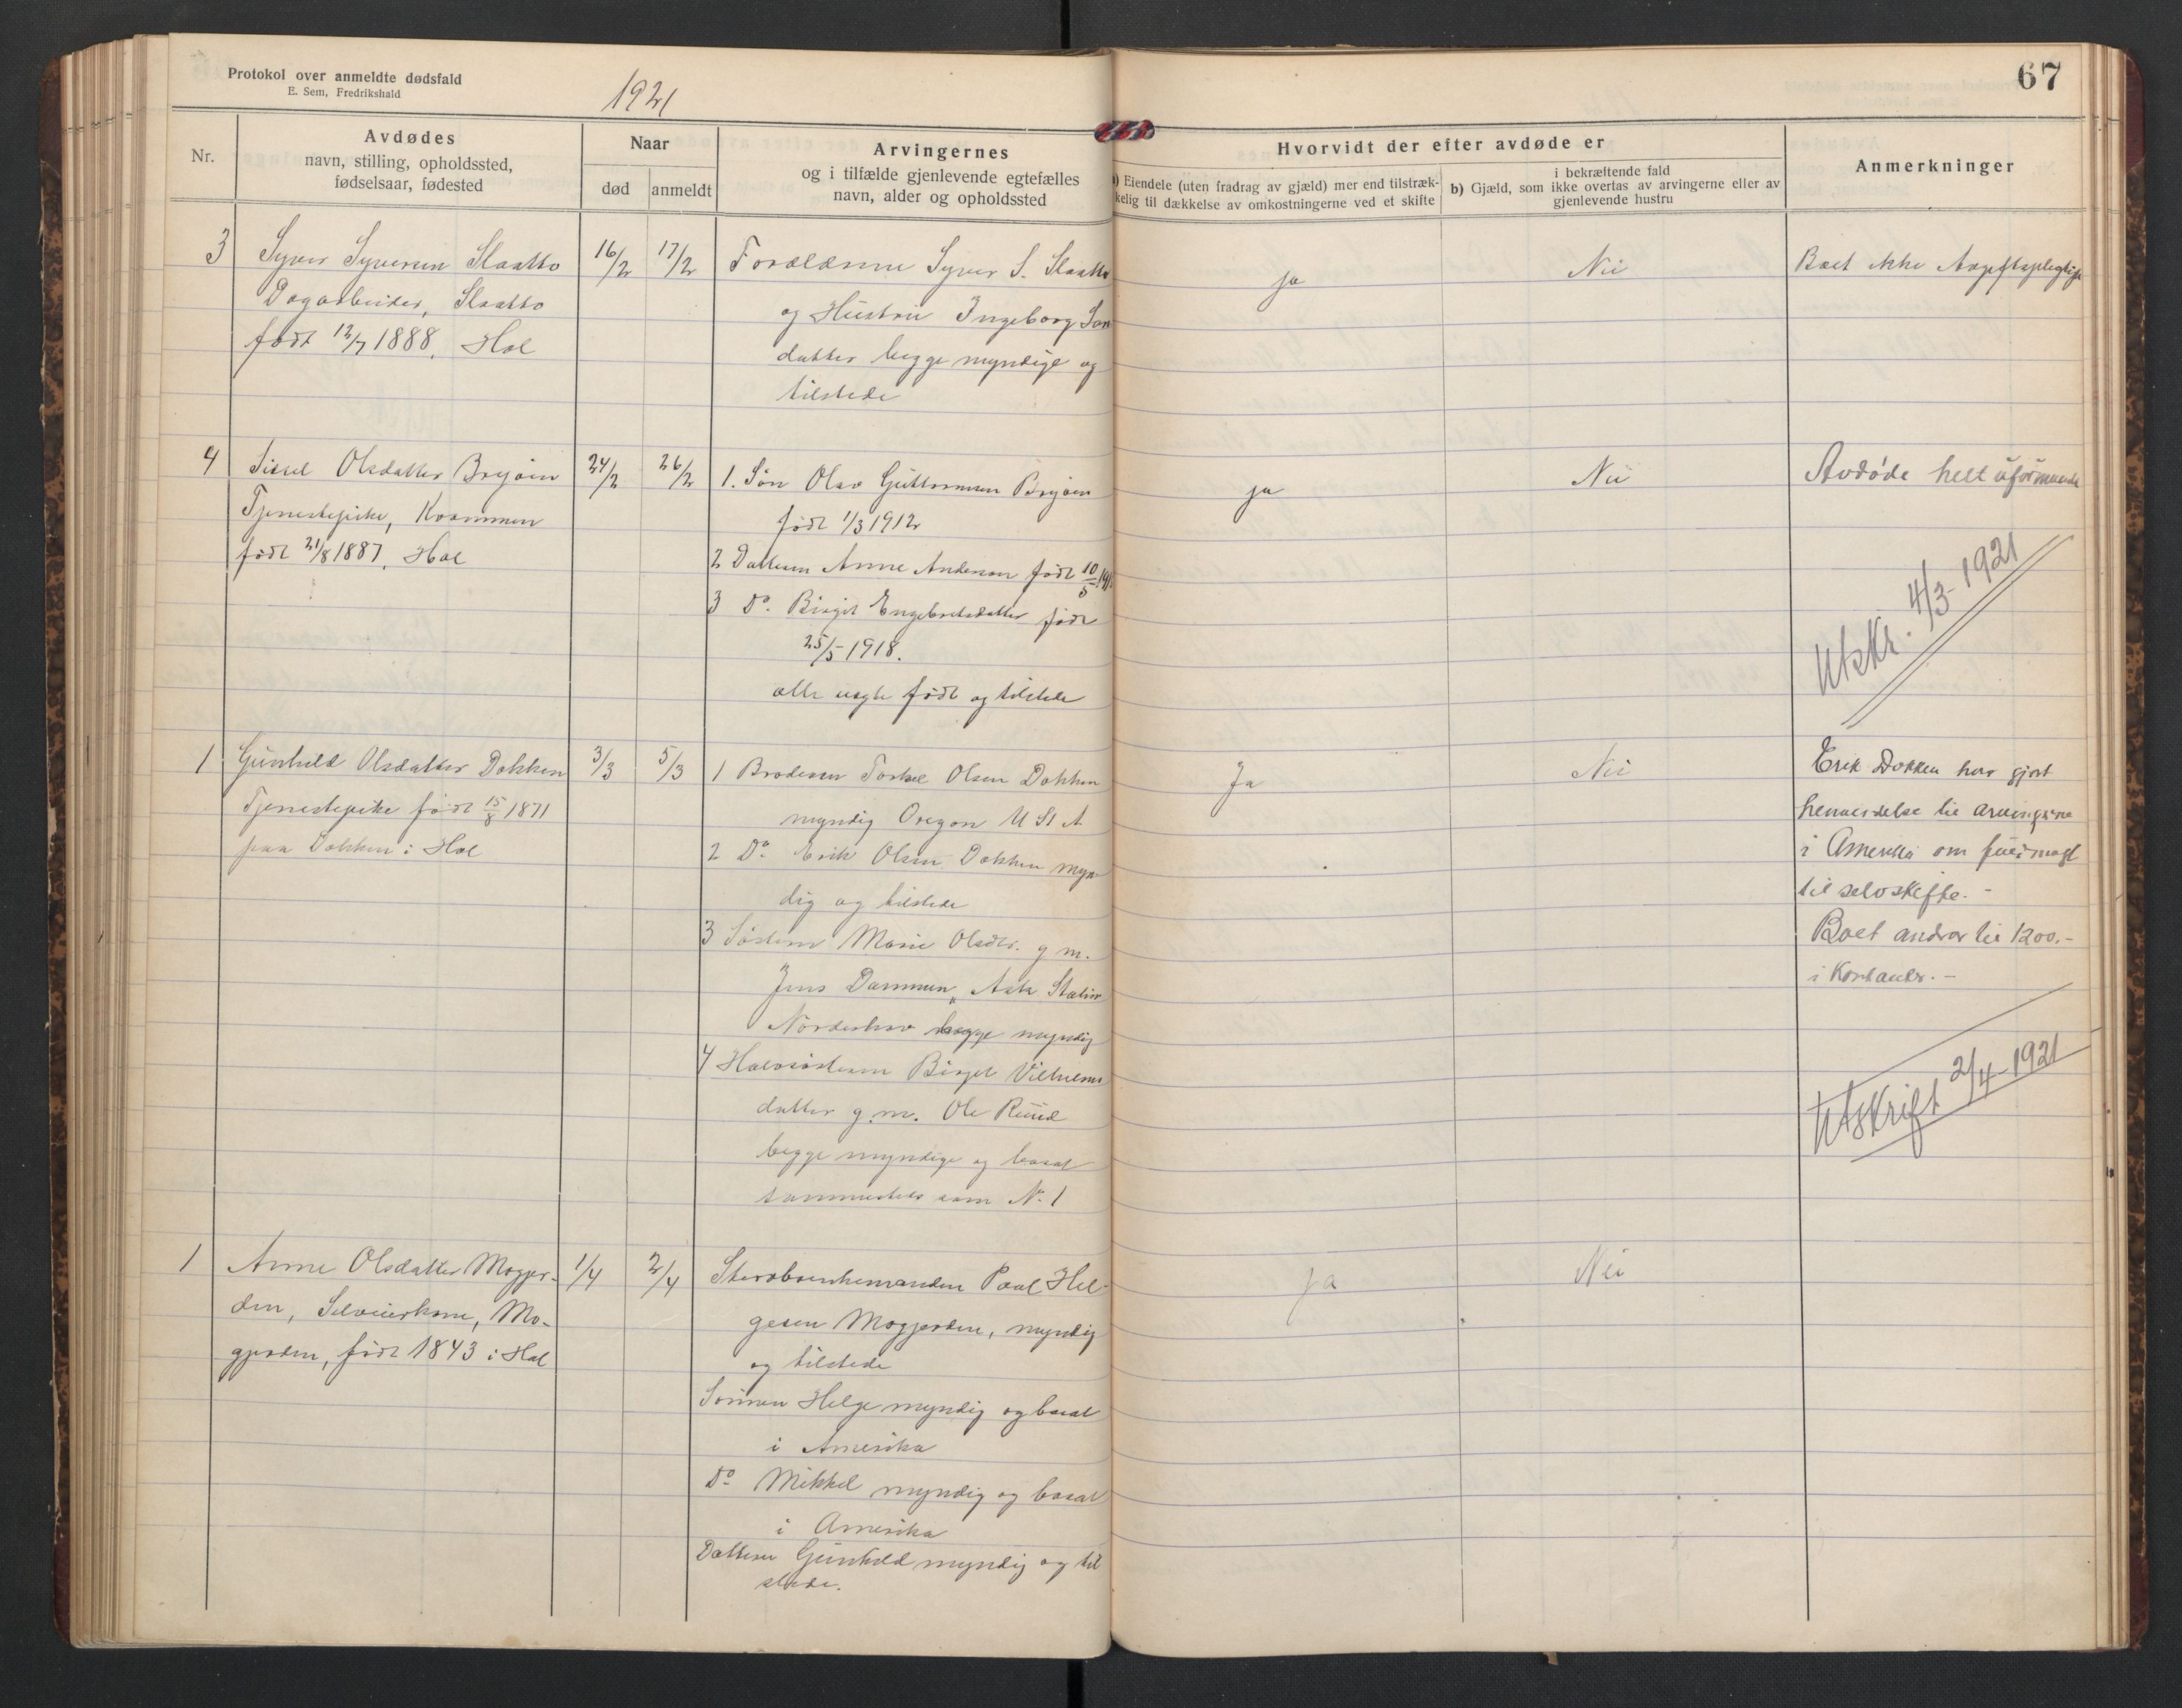 Protokol over anmeldte dødsfald
E. Sem, Fredrikshald
1921
67
Nr.
Avdødes
navn, stilling, opholdssted,
fødselsaar, fødested
Naar
død
anmeldt
Arvingernes
og i tilfælde gjenlevende egtefælles
navn, alder og opholdssted
Hvorvidt der efter avdøde er
a) Eiendele (uten fradrag av gjæld) mer end tilstræk-
kelig til dækkelse av omkostningerne ved et skifte
i bekræftende fald
b) Gjæld, som ikke overtas av arvingerne eller av
gjenlevende hustru
Anmerkninger
3
Syver Syversen Slaatto
Dagarbeider, Slaatto
født 12/7 1888, Hol
16/2
17/2
Forældrene Syver S. Slaatto
og Hustru Ingeborg
datter begge myndige og
tilstede
ja
Nei
Boet ikke
4
Sissel Olsdatter Bryøen
Tjenestepike,
født 21/8 1887, Hol
24/2
26/2
1. Søn Olav Guttormsen Bryøen
født 1/3 1912
2 Datteren Anne Anderson født 10/5
3 Do. Birgit Engebretsdatter født
25/5 1918.
alle uegte født og tilstede
ja
Nei
Avdøde helt uformuende
Utskr. 4/3-1921
1
Gunhild Olsdatter Dokken
Tjenestepike født 15/8 1871
paa Dokken i Hol
3/3
5/3
1 Broderen Torkel Olsen Dokken
myndig Oregon U St A
2 Do. Erik Olsen Dokken myn-
dig og tilstede
3 Søsteren Marie Olsdtr. g m.
Jens Dammen, Ask Station
Norderhov begge myndig
4 Halvsøsteren Birget Vilhelms
datter g. m. Ole Ruud
begge myndige og bosat
sammesteds som No. 1
Ja
Nei
Erik Dokken har gjort
henvendelse til arvingerne
i Amerika om fuldmagt
til selvskifte.-
Boet andrar til 1200.-
i Kontanter.-
Utskrift 2/4-1921
1
Anne Olsdatter Mogjer-
den, Selveierkone, Mo-
gjerden, født 1843 i Hol
1/4
2/4
Paal Hel-
gesen Mogjerden, myndig
og tilstede
Sønnen Helge myndig og bosat
i Amerika
Do Mikkel myndig og bosat
i Amerika
Datteren Gunhild myndig og til
stede.
ja
Nei